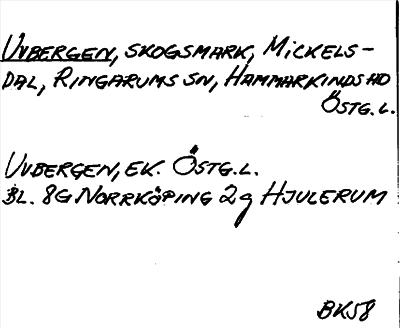 UVBERGEN, SKOGSMARK, MICKELS-
DAL, RINGARUMS SN, HAMMARKINDS HD
ÖSTG.L.
UVBERGEN, EK. ÖSTG.L.
BL. 8G NORRKÖPING 2g HJULERUM
BK58